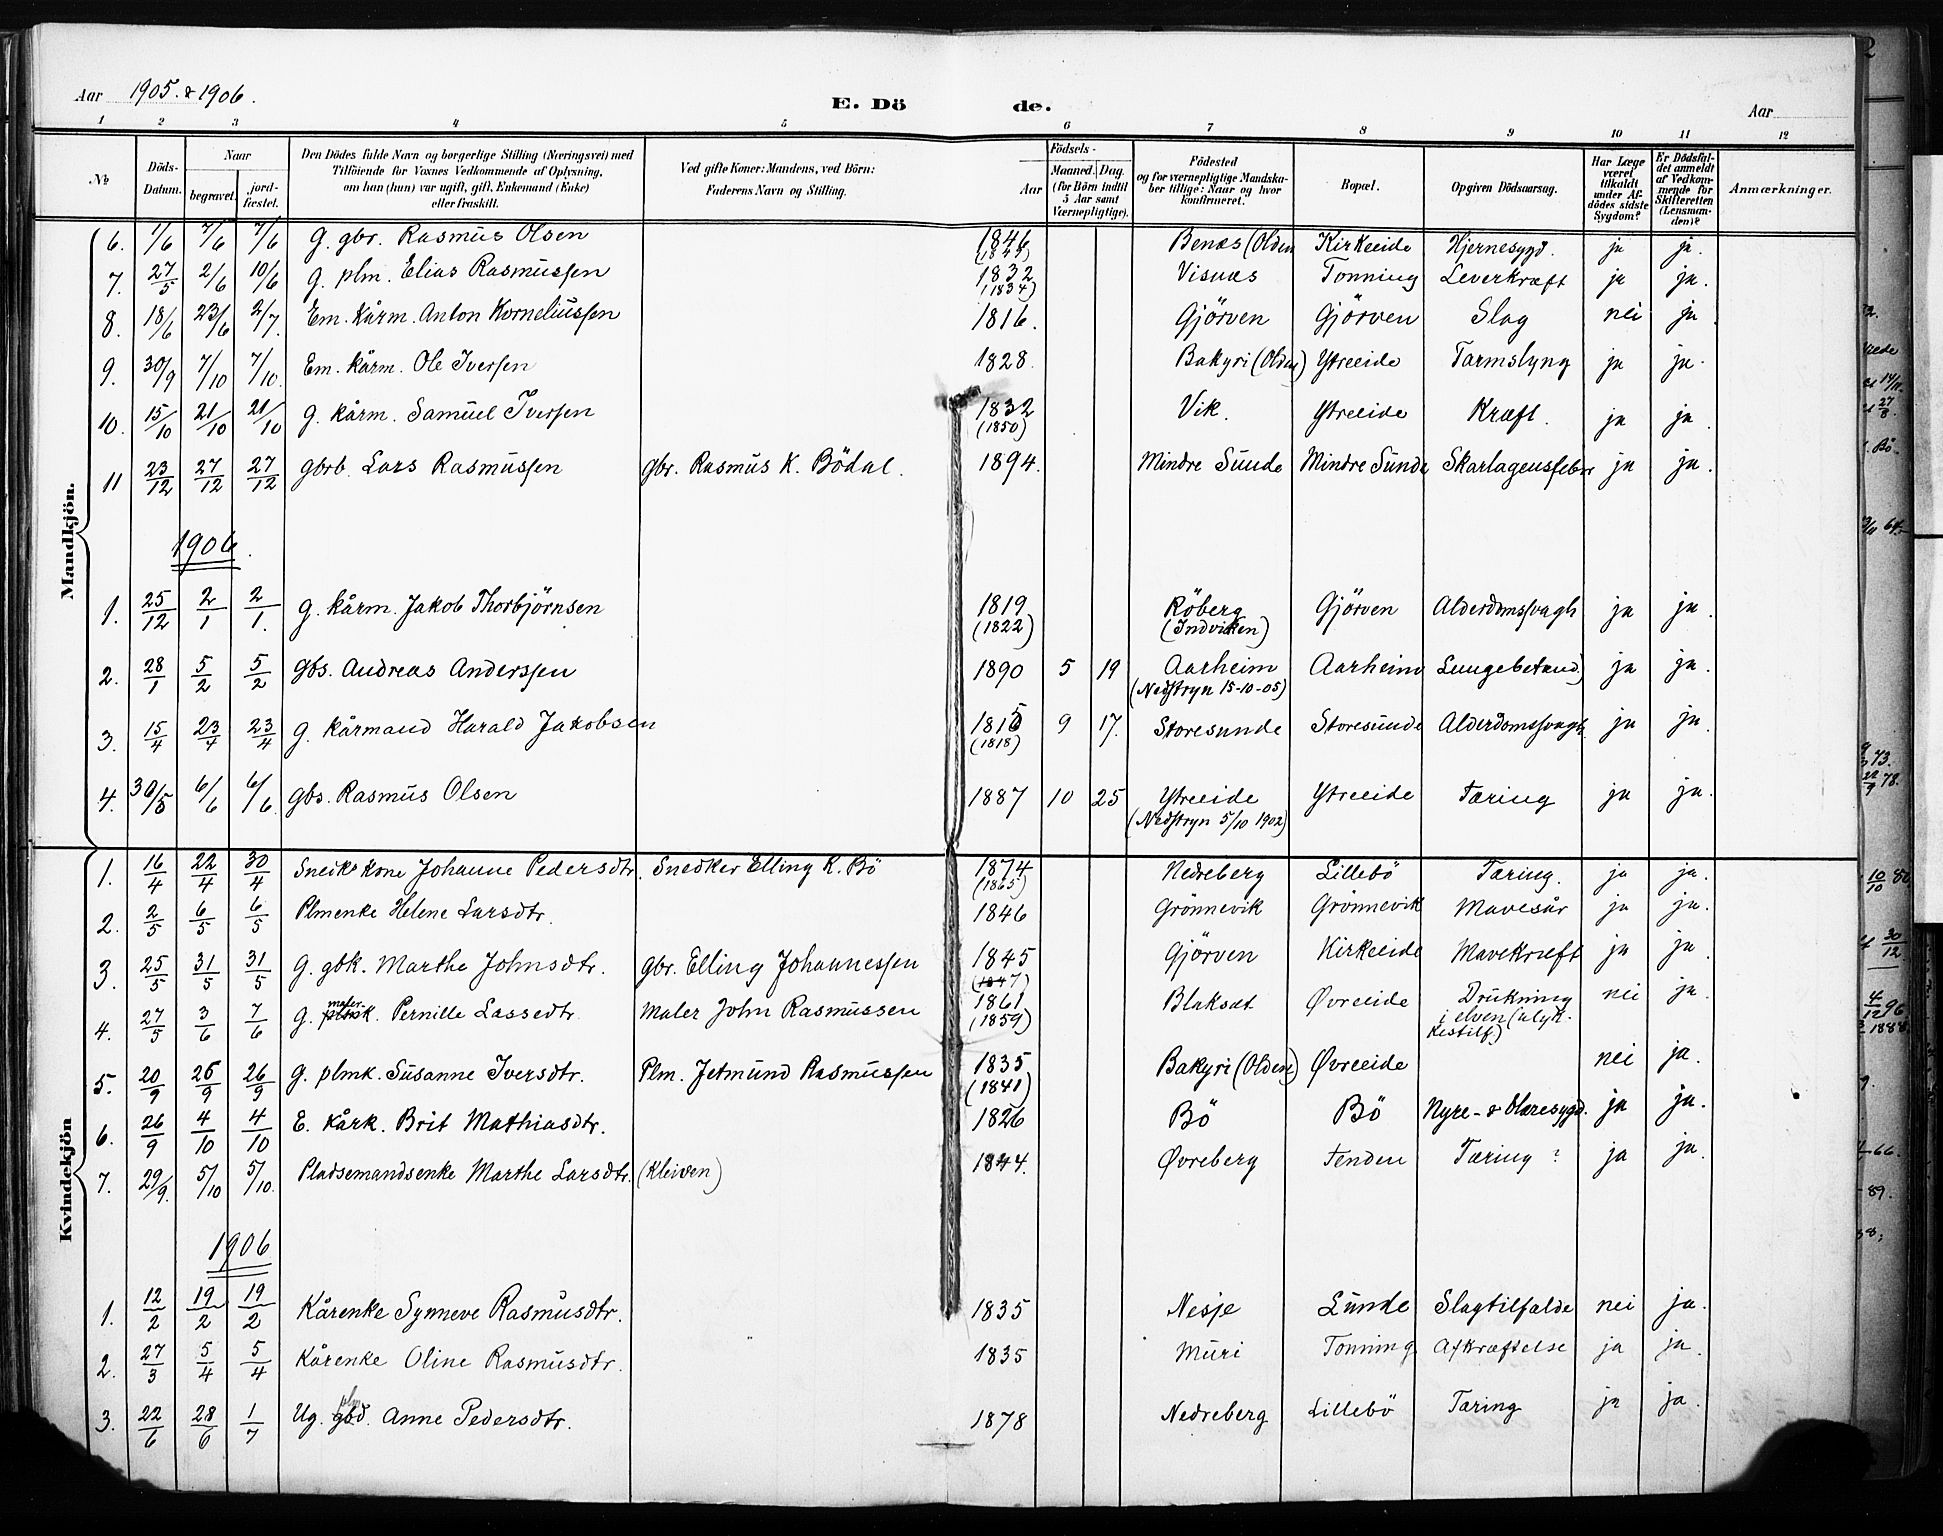 Aar 1905. & 1906.
E. Dö de.
Aar
1 2 3 4 5 6 7 8 9 10 11 12
No
Döds-Datum.
Naar
begravet.
jord-fæstet.
Den Dödes fulde Navn og borgerlige Stilling (Næringsvei) med
Tilföiende for Voxnes Vedkommende af Oplysning,
om han (hun) var ugift, gift, Enkemand (Enke)
eller fraskilt.
Ved gifte Koner: Mandens, ved Börn:
Faderens Navn og Stilling.
Födsels-
Aar
Maaned. Dag.
(for Börn indtil
5 Aar samt
Værnepligtige).
Födested
og for værnepligtige Mandska-
ber tillige: Naar og hvor
konfirmeret.
Bopæl.
Opgiven Dödsaarsag.
Har Læge
været
tilkaldt
under Af-
dödes sidste
Sygdom?
Er Dödsfal-
det anmeldt
af Vedkom-
mende for
Skifteretten
(Lensman-
den)?
Anmærkninger.
Mandkjön.
6. 1/6 7/6 7/6 G. gbr. Rasmus Olsen 1846 Benæs (Olden Kirkeeide Hjernesygd. ja ja.
7. 27/5 2/6 10/6 G. plm. Elias Rasmussen 1832 (1834) Visnæs Tonning Leverkræft ja ja.
8. 18/6 23/6 2/7. Em. kårm. Anton Korneliussen 1816. Gjörven Gjörven Slag nei ja.
9. 30/9 7/10 7/10. Em. kårm. Ole Iversen 1828. Bakyri (Olden) Ytreeide Tarmslyng ja ja.
10. 15/10 21/10 21/10 G. kårm. Samuel Iversen 1832 (1850) Vik. Ytreeide Kræft. ja ja.
11 23/12 27/12 27/12 gbrb. Lars Rasmussen gbr. Rasmus K. Bödal. 1894. Mindre Sunde Mindre Sunde Skarlagensfeber ja ja.
1906.
1. 25/12 2/1 2/1. G. kårm. Jakob Thorbjörnsen 1819 (1822) Röberg (Indviken) Gjörven Alderdomssvagh ja ja.
2. 28/1 5/2 5/2 gbs. Andreas Anderssen 1890 5 19 Aarheim (Nedstryn 15-10-05) Aarheim Lungebetænd) ja ja.
3. 15/4 23/4 23/4 G. kårmand Harald Jakobsen 1815 (1818) 9 17. Storesunde Storesunde Alderdomssvagh. ja ja.
4. 30/5 6/6 6/6 gbs. Rasmus Olsen 1887 10 25 Ytreeide (Nedstryn 5/10 1902) Ytreeide Tæring ja ja.
Kvindekjön
1. 16/4 22/4 30/4 Sneik. kone Johanne Pedersdtr. Snedker Elling K. Bö 1874 (1865) Nedreberg Lillebö Tæring. ja ja.
2. 2/5 6/5 6/5 Plmenke Helene Larsdtr. 1846 Grönnevik Grönnevik Mavesår ja ja.
3. 25/5 31/5 31/5 G. gbk. Marthe Johnsdtr. gbr. Elling Johannessen 1845 (1847) Gjörven Kirkeeide Mavekræft ja ja.
4. 27/5 3/6 7/6 G. maler k. Pernille Lassedtr. Maler John Rasmussen 1861 (1859) Blaksæt Øvreeide Drukning i elven (ulyk- kestilf.) nei ja.
5. 20/9 26/9 26/9 G. plmk. Susanne Iversdtr. Plm. Jetmund Rasmussen 1835 (1841) Bakyri (Olden) Øvreeide nei ja.
6. 26/9 4/10 4/10 E. kårk. Brit Mathiasdtr. 1826 Bö Bö Nyre- & Blæresygd. ja ja.
7. 29/9. 5/10 5/10. Pladsemandsenke Marthe Larsdtr. (Kleiven) 1844. Øvreberg Tenden Tæring? ja ja.
1906
1. 12/2 19/2 19/2 Kårenke Synneve Rasmusdtr. 1835 Nesje Sunde Slagtilfælde nei ja.
2. 27/3 5/4 5/4 Kårenke Oline Rasmusdtr. 1835 Muri Tonning Afkræftelse ja ja.
3. 22/6 28/6 1/7 Ug. plm gbd. Anne Pedersdtr. 1878 Nedreberg Lillebö Tæring ja ja.